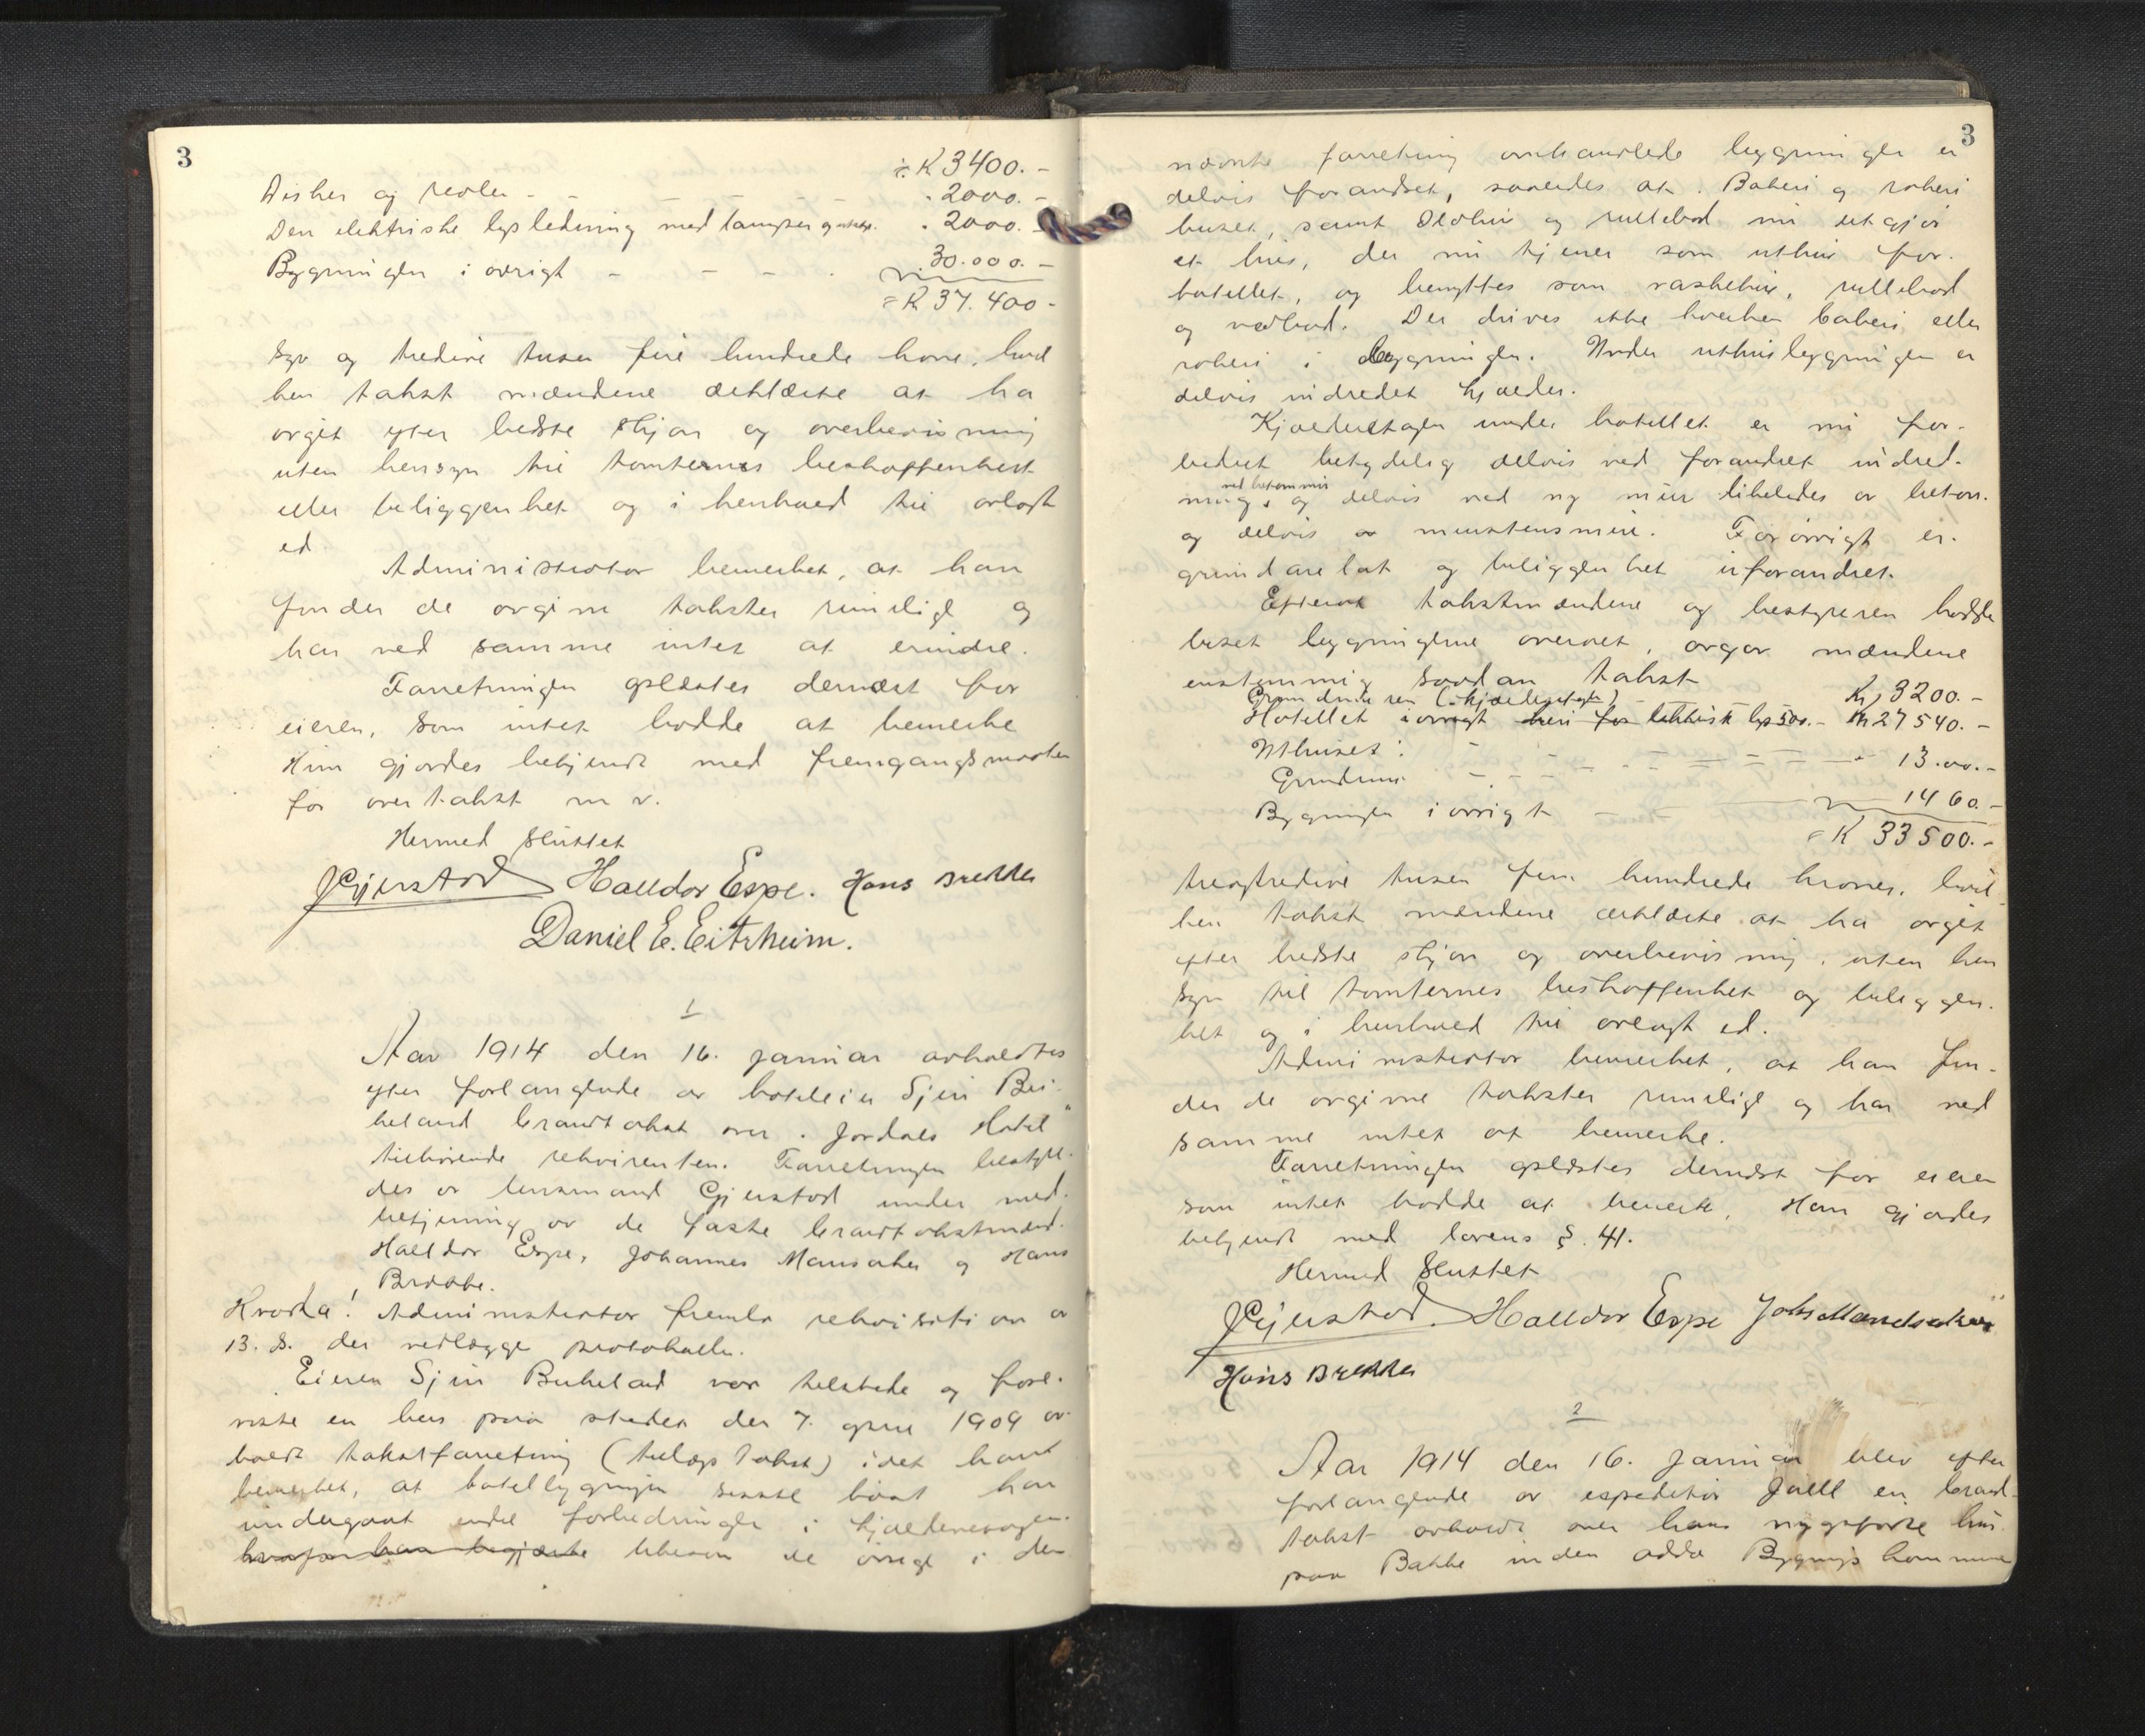 3
÷ K 3400.-
Disker og reoler - - - - - - . 2000.-
Den elektriske lysledning med lamper og . 2000.-
Bygningen i øvrigt - - - . 30.000.-
= K 37.400-
syv og tredive tusen fire hundrede krone, hvil
ken takst mændene erklærte at ha
avgit efter bedste skjøn og overbevisning
uten hensyn til tomternes beskaffenhet
eller beliggenhet og i henhold til avlagt
ed.
Administrator bemerket, at han
finder de avgivne takster rimelige og
har ved samme intet at erindre.
Forretningen oplæstes dernæst for
eieren, som intet hadde at bemerke
Hun gjordes bekjendt med fremgangsmaaten
for overtakst m v.
Hermed sluttet
Gjerstad Halldor Espe. Hans Brekke
Daniel E. Eitrheim.
1
Aar 1914 den 16. januar avholdtes
efter forlangende av hoteleier Sjur
brandtakst over "Jordals Hotel"
tilhørende rekvirenten. Forretningen bestyr-
des av lensmand Gjerstad under med-
betjening av de faste brandtakstmænd
Halldor Espe, Johannes Mansaker og Hans
Brekke.
Hvorda! Administrator fremla rekvisition av
13. ds. der vedlægges protokollen.
Eieren Sjur var tilstede og fore-
viste en her paa stedet den 7. april 1909 av-
holdt takstforretning (tillægs takst) idet han
bemerket, at hotelbygningen siden har
undergaat endel forbedringer i kjælderetagen
hvorfor han begjærte likesom de øvrige i den
3
nævnte forretning omhandlede bygninger er
delvis forandret, saaledes at Bakeri og røkeri
huset, samt Ildhus og rullebod nu utgjør
et hus, der nu tjener som uthus for
hotellet, og benyttes som vaskehus, rullebod
og vedbod. Der drives ikke hverken bakeri eller
røkeri i bygningen. Under uthusbygningen er
delvis indredet kjælder.
Kjælderetagen under hotellet er nu for-
bedret betydelig delvis ved forandret indred-
ning, ved betonmur og delvis ved ny mur likeledes av beton
og delvis av murstensmur. Forøvrigt er
grundareal og beliggenhet uforandret.
Efterat takstmændene og bestyreren hadde
beset bygningerne overalt, avgav mændene
enstemmig saadan takst
Grundmuren (: kjælderetagen) - Kr 3200.-
Hotellet iøvrigt heri for elektrisk lys 500.- Kr 27540.-
Uthuset:
Grundmur - - - - - - - 13.00.-
Bygningen iøvrigt - - 1460.-
= K 33500.-
treogtredive tusen fem hundrede kroner, hvil-
ken takst mændene erklærte at ha avgit
efter bedste skjøn og overbevisning, uten hen
syn til tomternes beskaffenhet og beliggen-
het og i henhold til avlagt ed.
Administrator bemerket, at han fin-
der de avgivne takster rimelige og har ved
samme intet at bemerke.
Forretningen oplæstes dernæst for eieren
som intet hadde at bemerke, Han gjordes
bekjendt med lovens §. 41.
Hermed sluttet
Gjerstad. Halldor Espe Johs Mandsaker
Hans Brekke
2
Aar 1914 den 16. januar blev efter
forlangende av expeditør Juell en brand-
takst avholdt over hans nyopførte hus
paa Bakke inden Odda Bygnings kommune